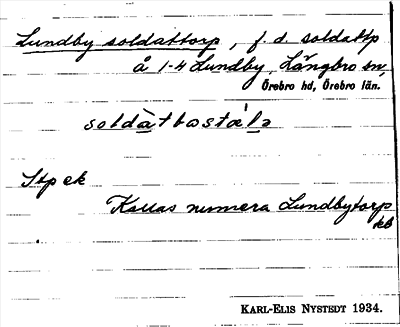 Lundby soldattorp, f. d. soldattp
å 1-4 Lundby, Längbro sn,
Örebro hd, Örebro län.
soldàtbostæ̀lə
Stp ek
Kallas numera Lundbytorp
kb
KARL-ELIS NYSTEDT 1934.